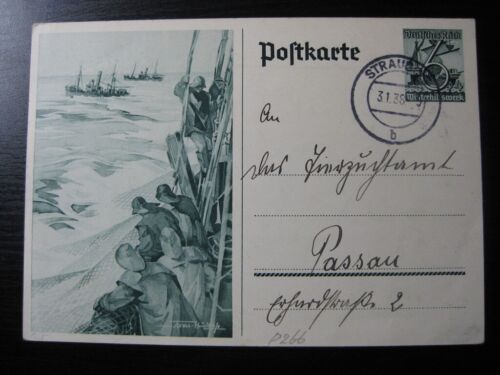 Postkarte
Deutsches Reich
6
Winterhilfswerk
STRAUB
3.1.38
b
An
das Tierzuchtamt
Passau
Erhardstraße 2
P266